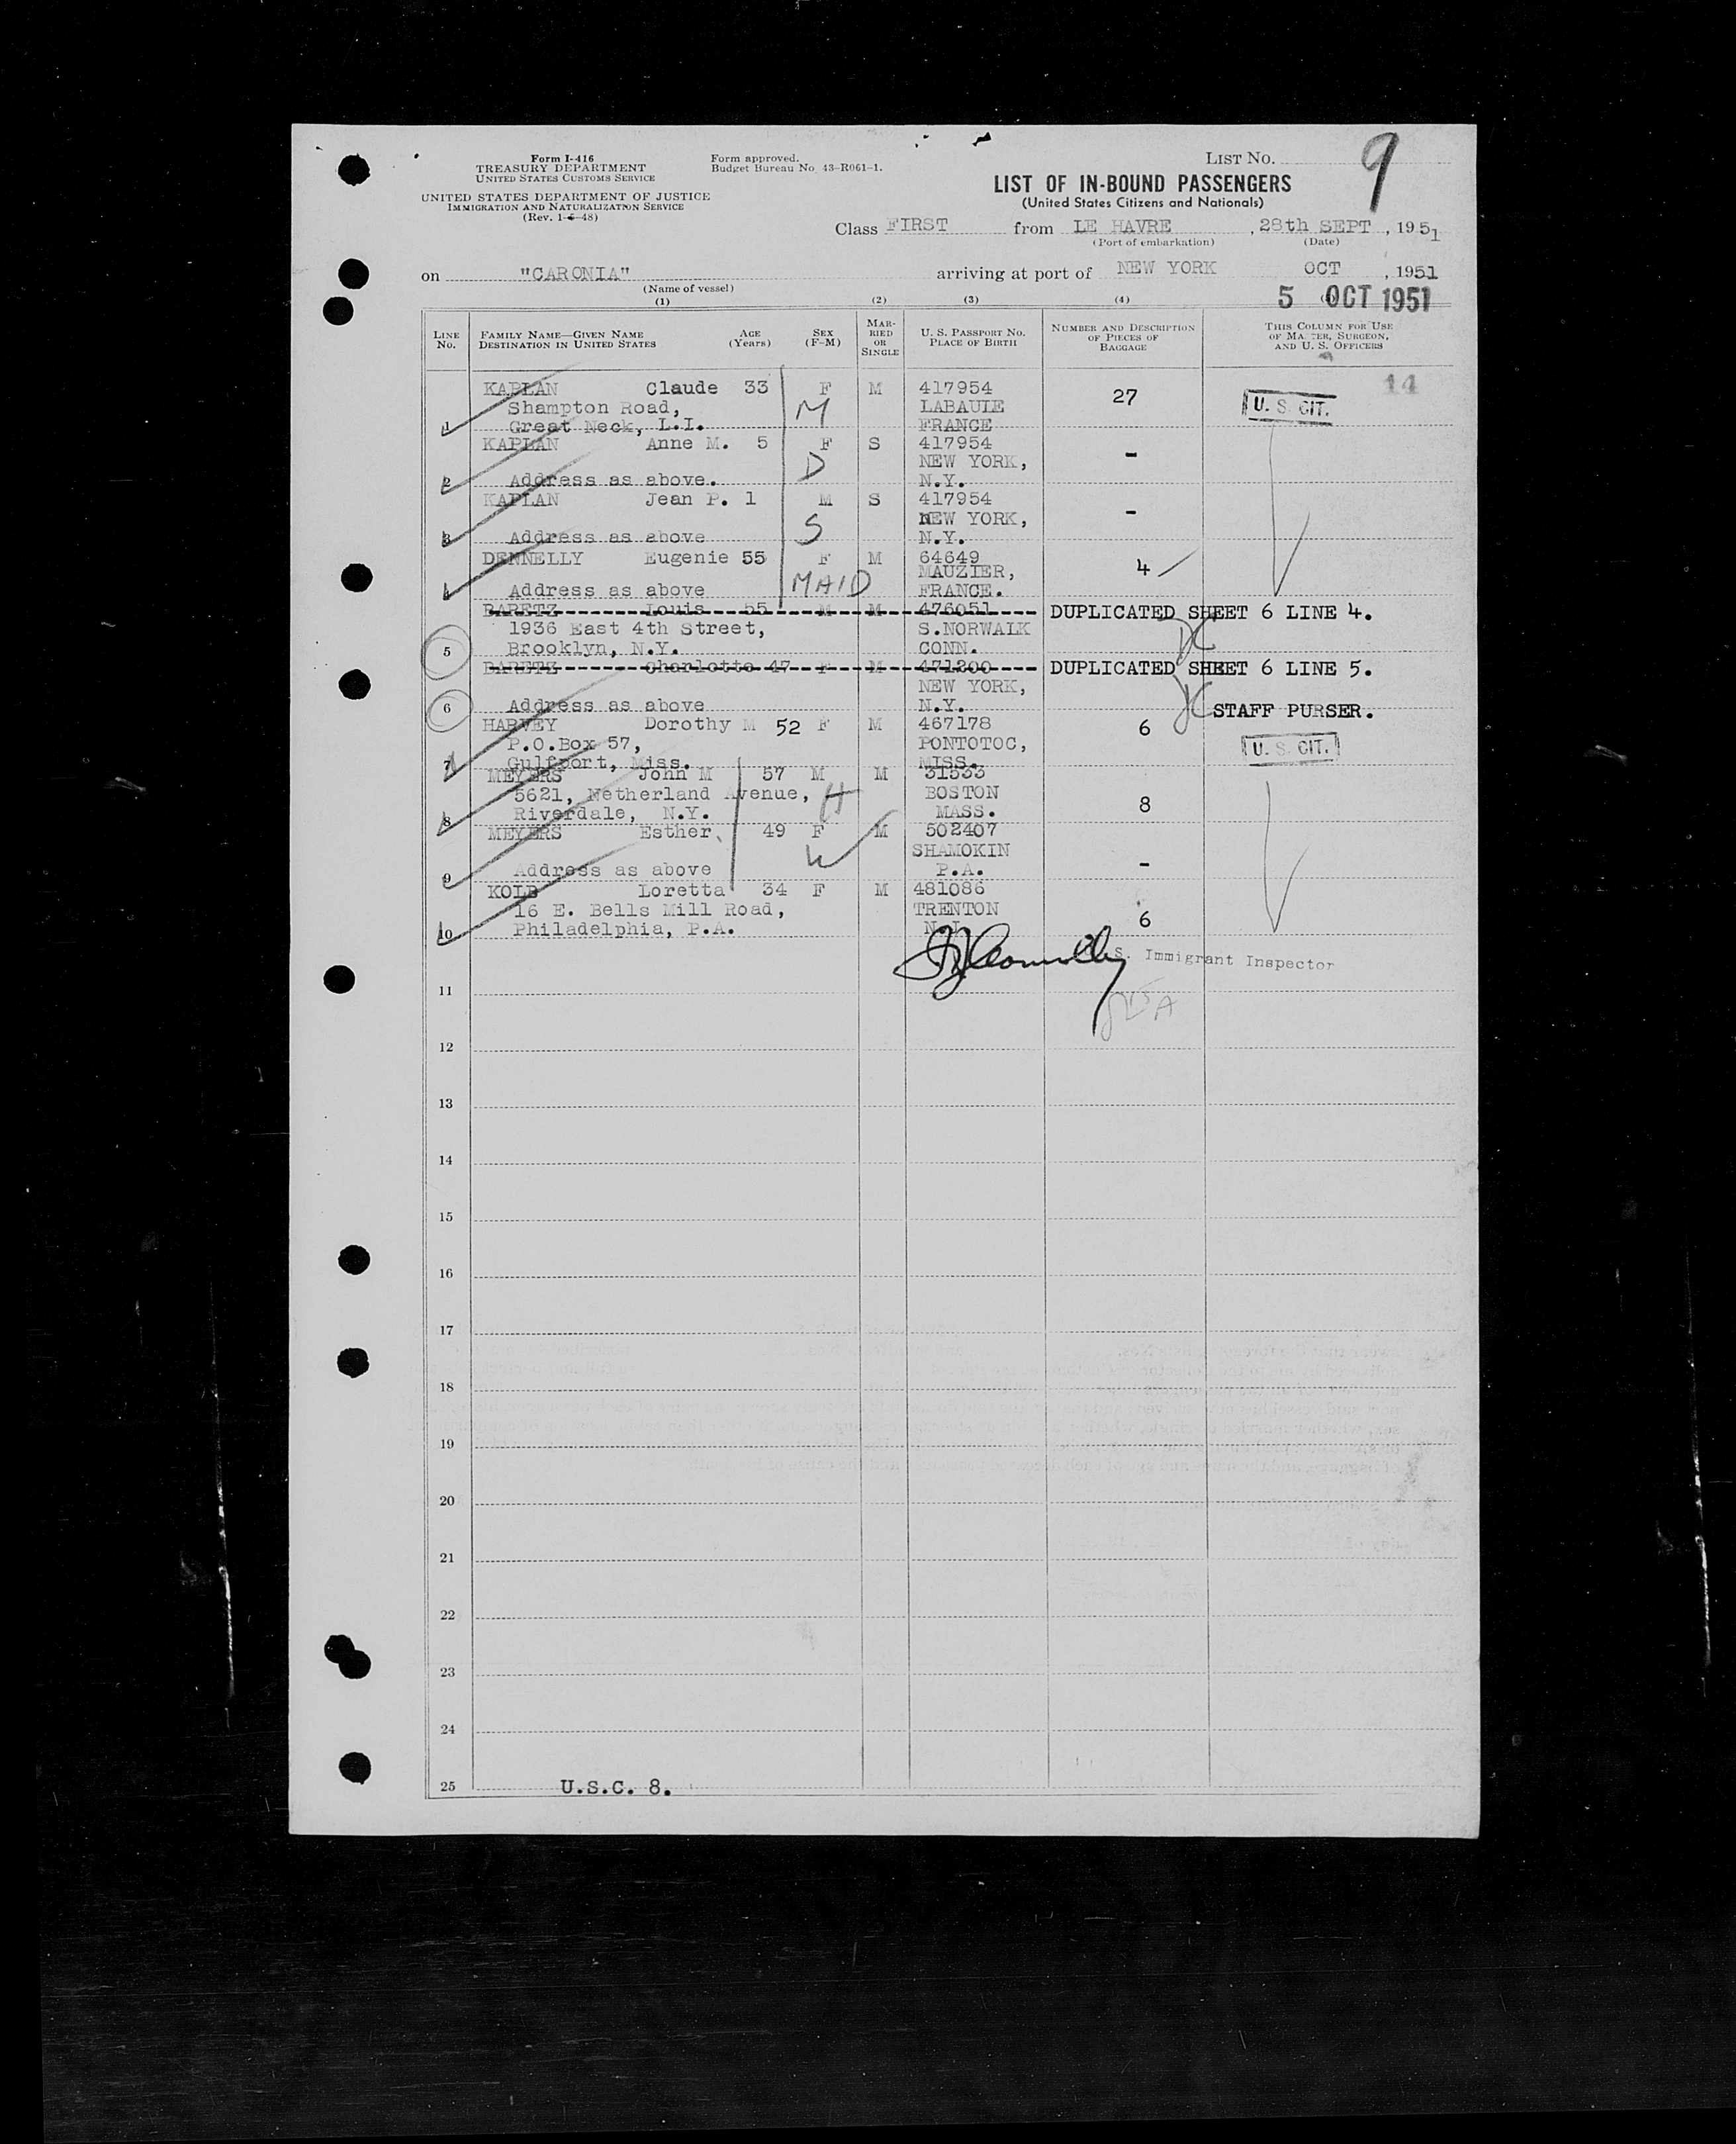 Form I-416
TREASURY DEPARTMENT
UNITED STATES CUSTOMS SERVICE
UNITED STATES DEPARTMENT OF JUSTICE
IMMIGRATION AND NATURALIZATION SERVICE
(Rev. 1-6-48)
Form approved.
Budget Bureau No. 43-R061-1.
LIST NO. 9
LIST OF IN-BOUND PASSENGERS
(United States Citizens and Nationals)
Class FIRST from LE HAVRE, 28th SEPT, 1951
(Port of embarkation) (Date)
on "CARONIA" arriving at port of NEW YORK OCT, 1951
(Name of vessel)
5 OCT 1951
(1) (2) (3) (4)
LINE NO. FAMILY NAME—GIVEN NAME DESTINATION IN UNITED STATES AGE (Years) SEX (F-M) MARRIED OR SINGLE U. S. PASSPORT NO. PLACE OF BIRTH NUMBER AND DESCRIPTION OF PIECES OF BAGGAGE THIS COLUMN FOR USE OF MASTER, SURGEON, AND U. S. OFFICERS
14
KAPLAN Claude 33 F M 417954 27 U. S. CIT.
Shampton Road, M LABAULE
1 Great Neck, L.I. FRANCE
KAPLAN Anne M. 5 F S 417954 -
D NEW YORK,
2 Address as above. N.Y.
KAPLAN Jean P. 1 M S 417954 -
S NEW YORK,
3 Address as above N.Y.
DENNELLY Eugenie 55 F M 64649 4
MAID MAUZIER,
4 Address as above FRANCE.
BARETZ Louis 55 M M 476051 DUPLICATED SHEET 6 LINE 4.
1936 East 4th Street, S.NORWALK
5 Brooklyn, N.Y. CONN.
BARETZ Charlotte 47 F M 471200 DUPLICATED SHEET 6 LINE 5.
NEW YORK,
6 Address as above N.Y. STAFF PURSER.
HARVEY Dorothy M 52 F M 467178 6
P.O.Box 57, PONTOTOC, U. S. CIT.
7 Gulfport, Miss. MISS.
MEYERS John M 57 M M 31533
5621, Netherland Avenue, H BOSTON 8
8 Riverdale, N.Y. MASS.
MEYERS Esther 49 F M 502407
W SHAMOKIN
9 Address as above P.A. -
KOLB Loretta 34 F M 481086
16 E. Bells Mill Road, TRENTON
10 Philadelphia, P.A. N.J. 6
S. Immigrant Inspector
11
12
13
14
15
16
17
18
19
20
21
22
23
24
25 U.S.C. 8.